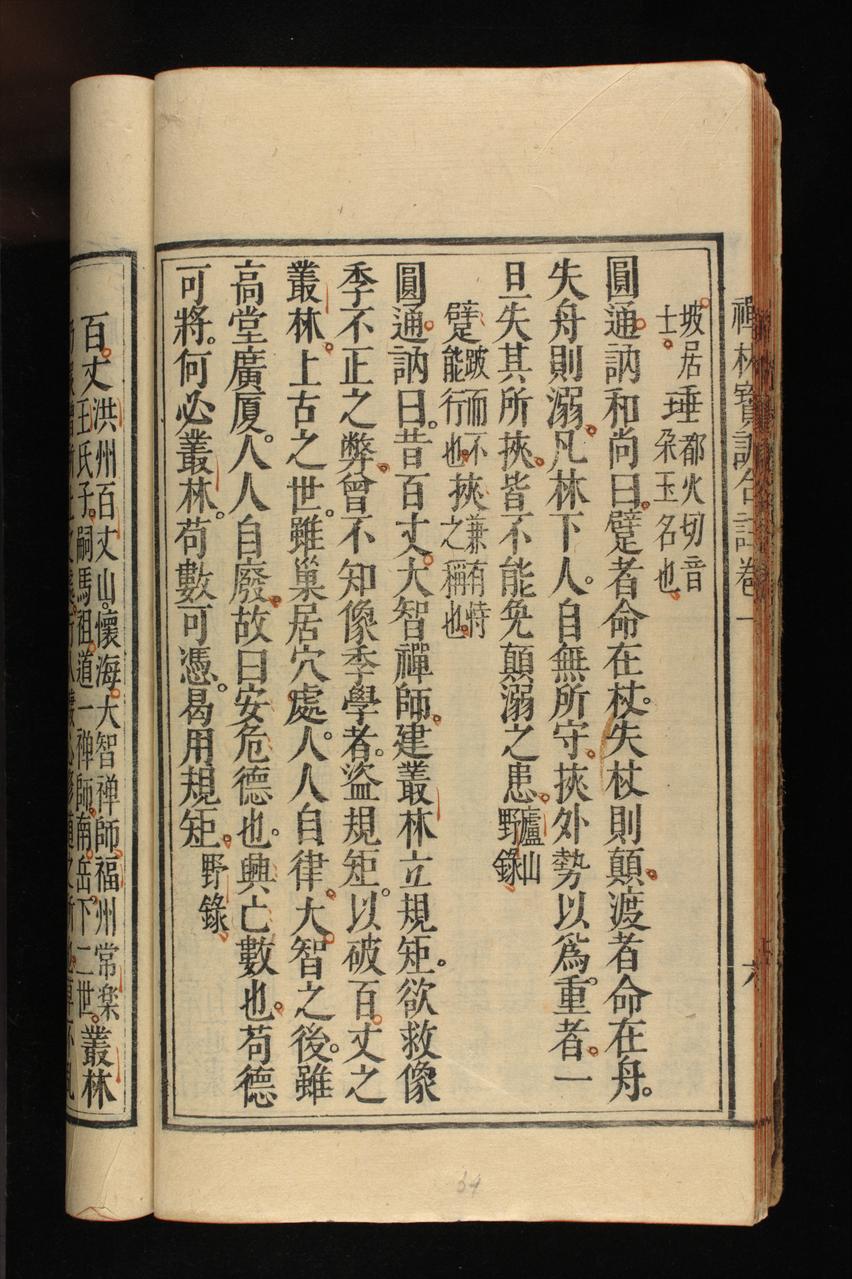 禪林寶訓合註卷一
六
坡居士。 埵都火切音朶玉名也
圓通訥和尚曰。躄者命在杖。失杖則顛。渡者命在舟。
失舟則溺。凡林下人。自無所守。挾外勢以爲重者。一
旦失其所挾。皆不能免顛溺之患。廬山野錄
躄跛而不能行也挾兼有恃之稱也
圓通訥曰。昔百丈大智禪師。建叢林立規矩。欲救像
季不正之弊。曾不知像季學者。盜規矩。以破百丈之
叢林。上古之世。雖巢居穴處。人人自律。大智之後。雖
高堂廣厦。人人自廢。故曰安危德也。興亡數也。苟德
可將。何必叢林。苟數可憑。曷用規矩。野錄
百丈洪州百丈山。懷海。大智禅師。福州常楽王氏子。嗣馬祖。道一禅師。南岳下二世。叢林